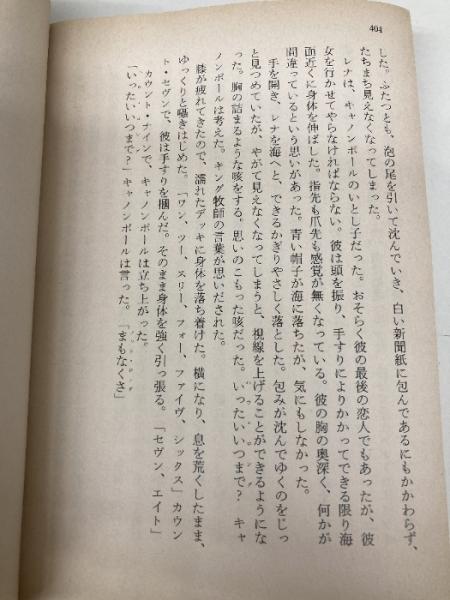 404
した。ふたつとも、泡の尾を引いて沈んでいき、白い新聞紙に包んであるにもかかわらず、
たちまち見えなくなってしまった。
レナは、キャノンボールのいとし子だった。おそらく彼の最後の恋人でもあったが、彼
女を行かせてやらなければならない。彼は頭を振り、手すりによりかかってできる限り海
面近くに身体を伸ばした。指先も爪先も感覚が無くなっている。彼の胸の奥深く、何かが
間違っているという思いがあった。青い帽子が海に落ちたが、気にもしなかった。
手を開き、レナを海へと、できるかぎりやさしく落とした。包みが沈んでゆくのをじっ
と見つめていたが、やがて見えなくなってしまうと、視線を上げることができるようにな
った。胸の詰まるような咳をする。思いのこもった咳だった。いったいいつまで？　キャ
ノンボールは考えた。キング牧師の言葉が思いだされた。
膝が疲れてきたので、濡れたデッキに身体を落ち着けた。横になり、息を荒くしたまま、
ゆっくりと囁きはじめた。「ワン、ツー、スリー、フォー、ファイヴ、シックス」カウン
ト・セヴンで、彼は手すりを掴んだ。そのまま身体を強く引っ張る。「セヴン、エイト」
カウント・ナインで、キャノンボールは立ち上がった。
「いったいいつまで？」キャノンボールは言った。「まもなくさ」